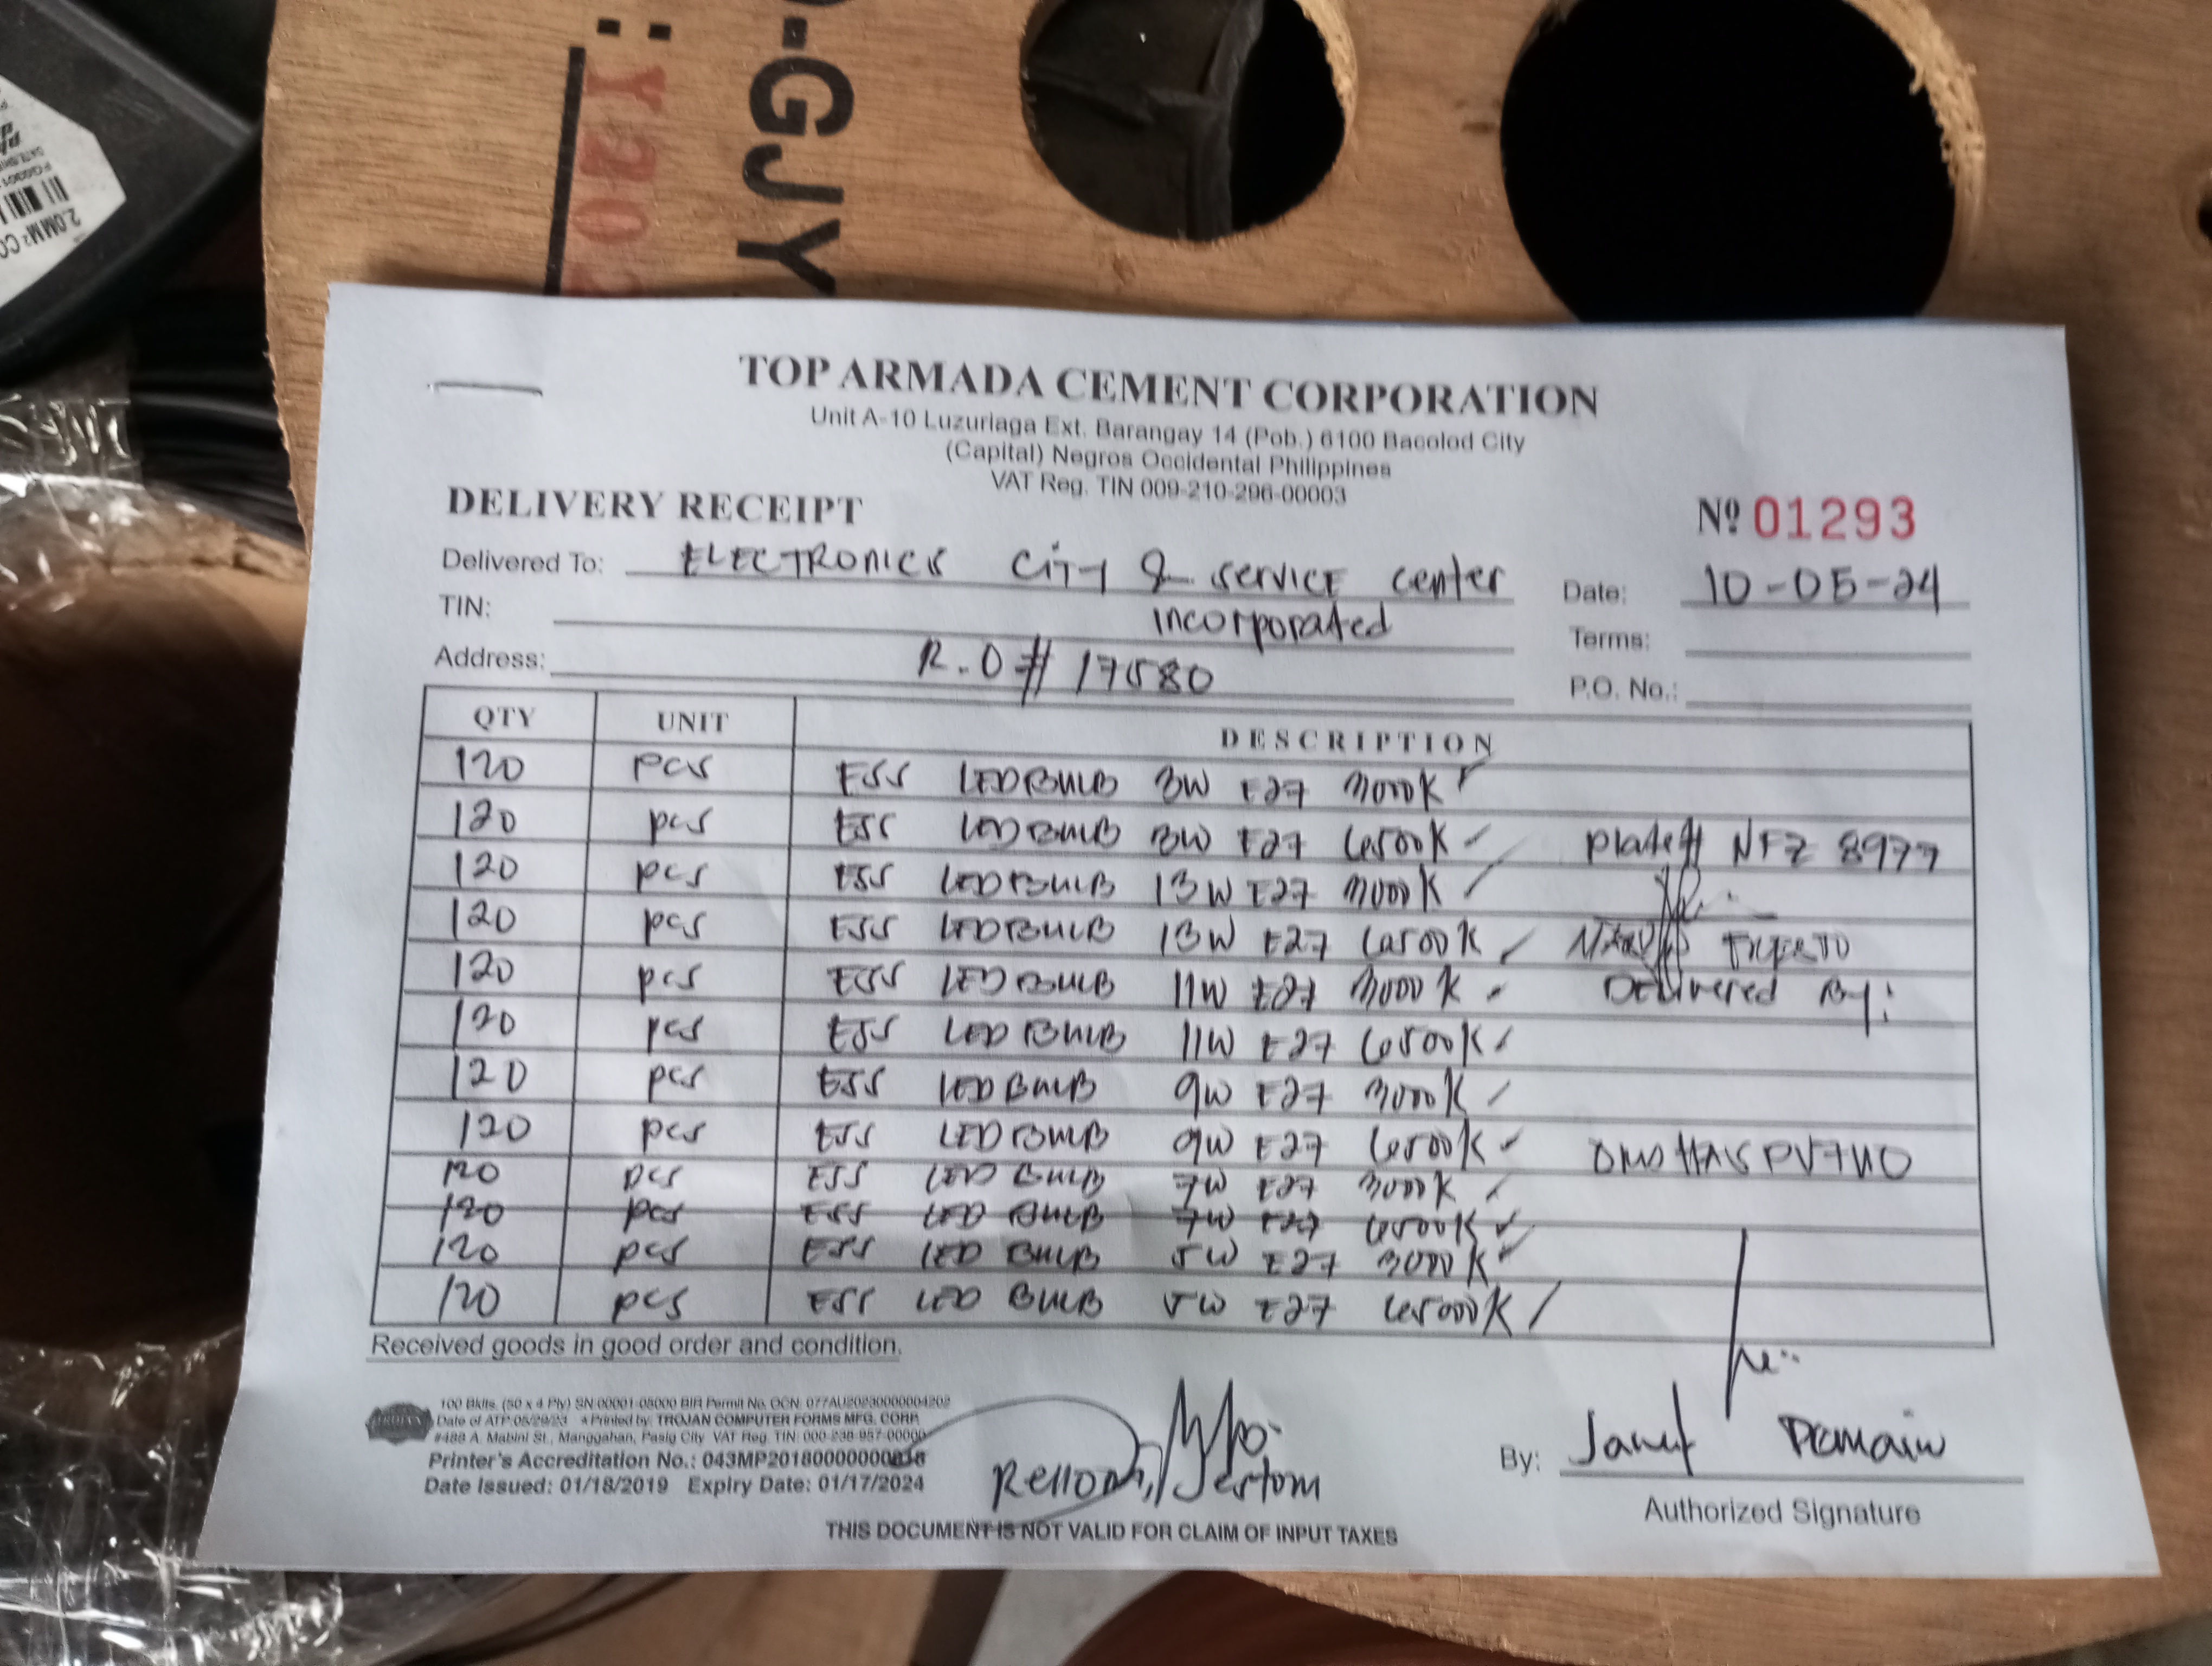 -GJY
2.0MM² CC
TOP ARMADA CEMENT CORPORATION
Unit A-10 Luzuriaga Ext. Barangay 14 (Pob.) 6100 Bacolod City
(Capital) Negros Occidental Philippines
VAT Reg. TIN 009-210-296-00003
DELIVERY RECEIPT
Nº 01293
Delivered To: ELECTRONICS CITY & SERVICE center
Date: 10-05-24
TIN: incorporated
Terms:
Address: R.O# 17580
P.O. No.:
QTY UNIT DESCRIPTION
120 pcs ESS LED BULB 3W E27 3000K
120 pcs ESS LED BULB 3W E27 6500K Plate# NFZ 8977
120 pcs ESS LED BULB 13W E27 3000K
120 pcs ESS LED BULB 13W E27 6500K
120 pcs ESS LED BULB 11W E27 3000K Delivered By:
120 pcs ESS LED BULB 11W E27 6500K
120 pcs ESS LED BULB 9W E27 3000K
120 pcs ESS LED BULB 9W E27 6500K
120 pcs ESS LED BULB 7W E27 3000K
120 pcs ESS LED BULB 7W E27 6500K
120 pcs ESS LED BULB 5W E27 3000K
120 pcs ESS LED BULB 5W E27 6500K
Received goods in good order and condition.
100 Bklts. (50 x 4 Ply) SN:00001-05000 BIR Permit No. OCN: 077AU20230000004202
Date of ATP:05/29/23 Printed by: TROJAN COMPUTER FORMS MFG. CORP.
#486 A. Mabini St., Manggahan, Pasig City VAT Reg. TIN: 000-238-957-00000
Printer's Accreditation No.: 043MP20180000000038
Date Issued: 01/18/2019 Expiry Date: 01/17/2024
Jestom
By:
Authorized Signature
THIS DOCUMENT IS NOT VALID FOR CLAIM OF INPUT TAXES